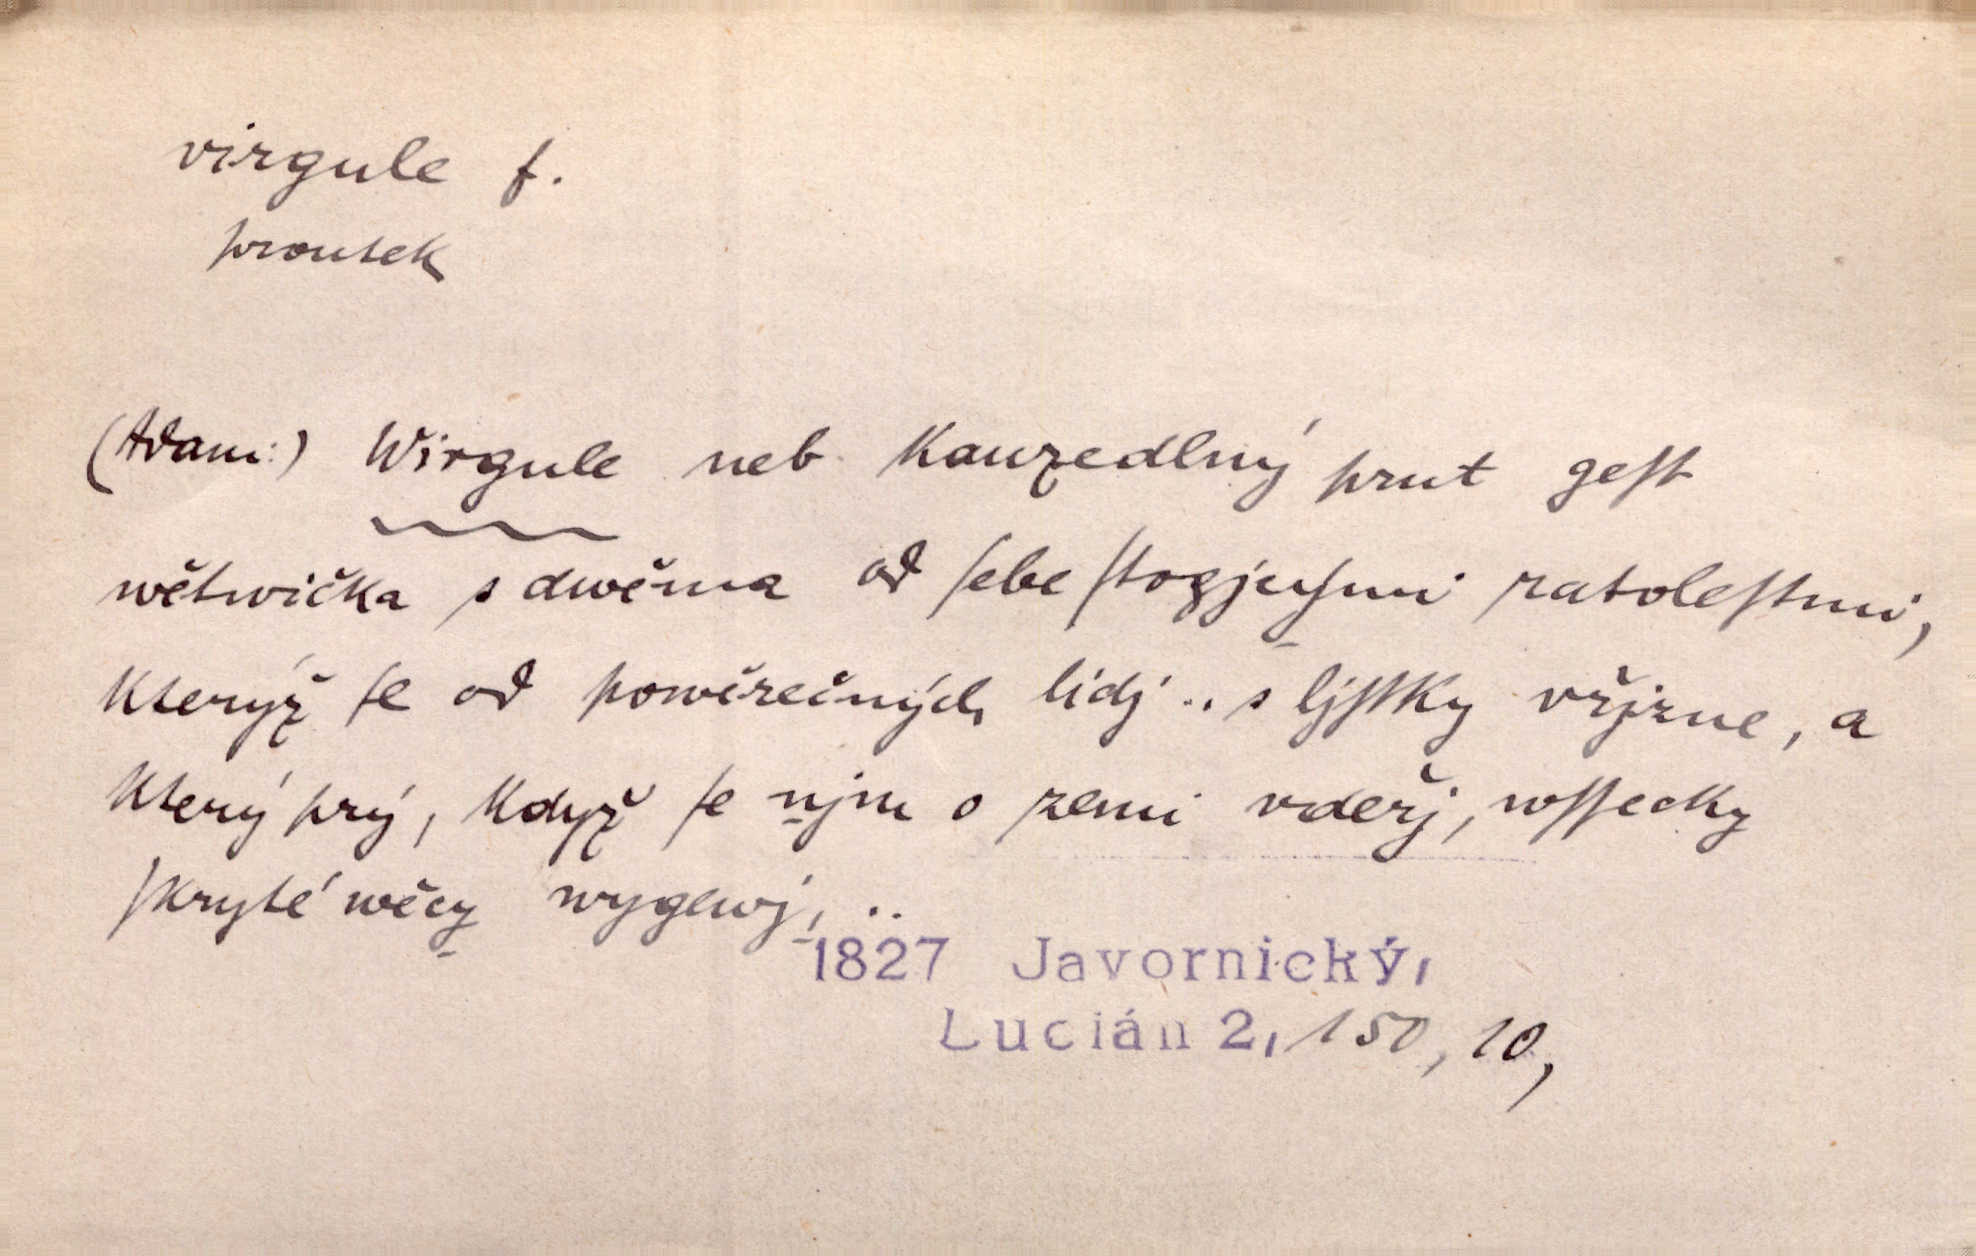 virgule f.
proutek
(Adam:) Wirgule neb Kauzedlný prut geſt
wětwička s dwěma od ſebe ſtogjcými ratoleſtmi,
kterýž ſe od powěrečných lidj .. s ljſtky vřjzne, a
který prý, když ſe njm o zemi vdeřj, wſſecky
ſkryté wěcy wygewj, ..
1827 Javornický,
Lucián 2, 150, 10,